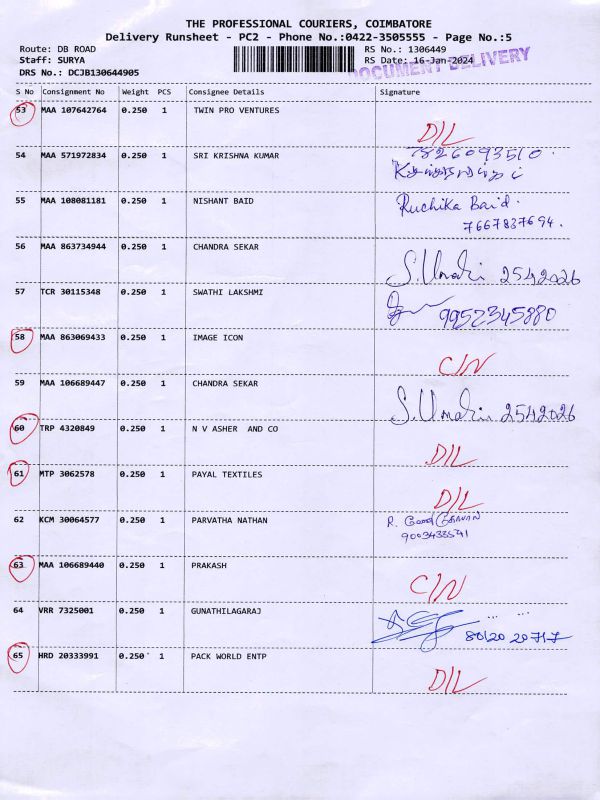 THE PROFESSIONAL COURIERS, COIMBATORE
Delivery Runsheet - PC2 - Phone No.:0422-3505555 - Page No.:5
Route: DB ROAD RS No.: 1306449
Staff: SURYA RS Date: 16-Jan-2024
DRS No.: DCJB130644905 DOCUMENT DELIVERY
S No Consignment No Weight PCS Consignee Details Signature
53 MAA 107642764 0.250 1 TWIN PRO VENTURES
D/L
54 MAA 571972834 0.250 1 SRI KRISHNA KUMAR 7826093510.
55 MAA 108081181 0.250 1 NISHANT BAID Ruchika Baid.
7667837694.
56 MAA 863734944 0.250 1 CHANDRA SEKAR
2542026
57 TCR 30115348 0.250 1 SWATHI LAKSHMI
9952345880
58 MAA 863069433 0.250 1 IMAGE ICON
C/N
59 MAA 106689447 0.250 1 CHANDRA SEKAR
2542026
60 TRP 4320849 0.250 1 N V ASHER AND CO
D/L
61 MTP 3062578 0.250 1 PAYAL TEXTILES
D/L
62 KCM 30064577 0.250 1 PARVATHA NATHAN
63 MAA 106689440 0.250 1 PRAKASH
C/N
64 VRR 7325001 0.250 1 GUNATHILAGARAJ
80120 20717
65 HRD 20333991 0.250 1 PACK WORLD ENTP
D/L